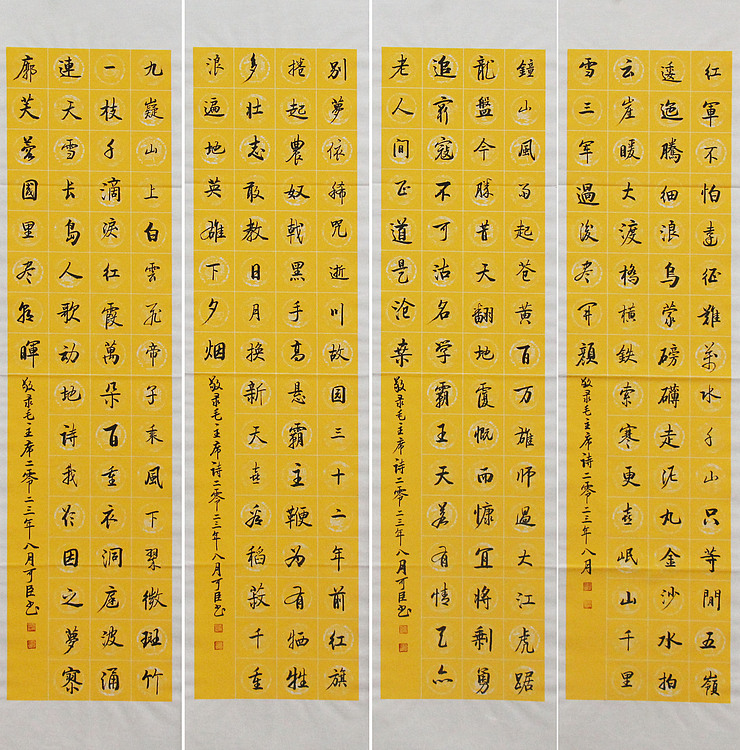 紅軍不怕遠征難万水千山只等閒五嶺
逶迤騰細浪烏蒙磅礴走泥丸金沙水拍
云崖暖大渡橋横鉄索寒更喜岷山千里
雪三军過後尽开顏
敬录毛主席诗二零二三年八月
鐘山風雨起苍黄百万雄师過大江虎踞
龍盤今勝昔天翻地覆慨而慷宜将剩勇
追窮寇不可沽名学霸王天若有情天亦
老人间正道是沧桑
敬录毛主席诗二零二三年八月可臣书
别夢依稀咒逝川故园三十二年前红旗
捲起農奴戟黑手高悬霸主鞭为有牺牲
多壮志敢教日月换新天喜看稻菽千重
浪遍地英雄下夕烟
敬录毛主席诗二零二三年八月可臣书
九嶷山上白雲飞帝子乘風下翠微斑竹
一枝千滴淚红霞萬朵百重衣洞庭波涌
連天雪長島人歌动地诗我欲因之夢寥
廓芙蓉國里尽朝暉
敬录毛主席诗二零二三年八月可臣书